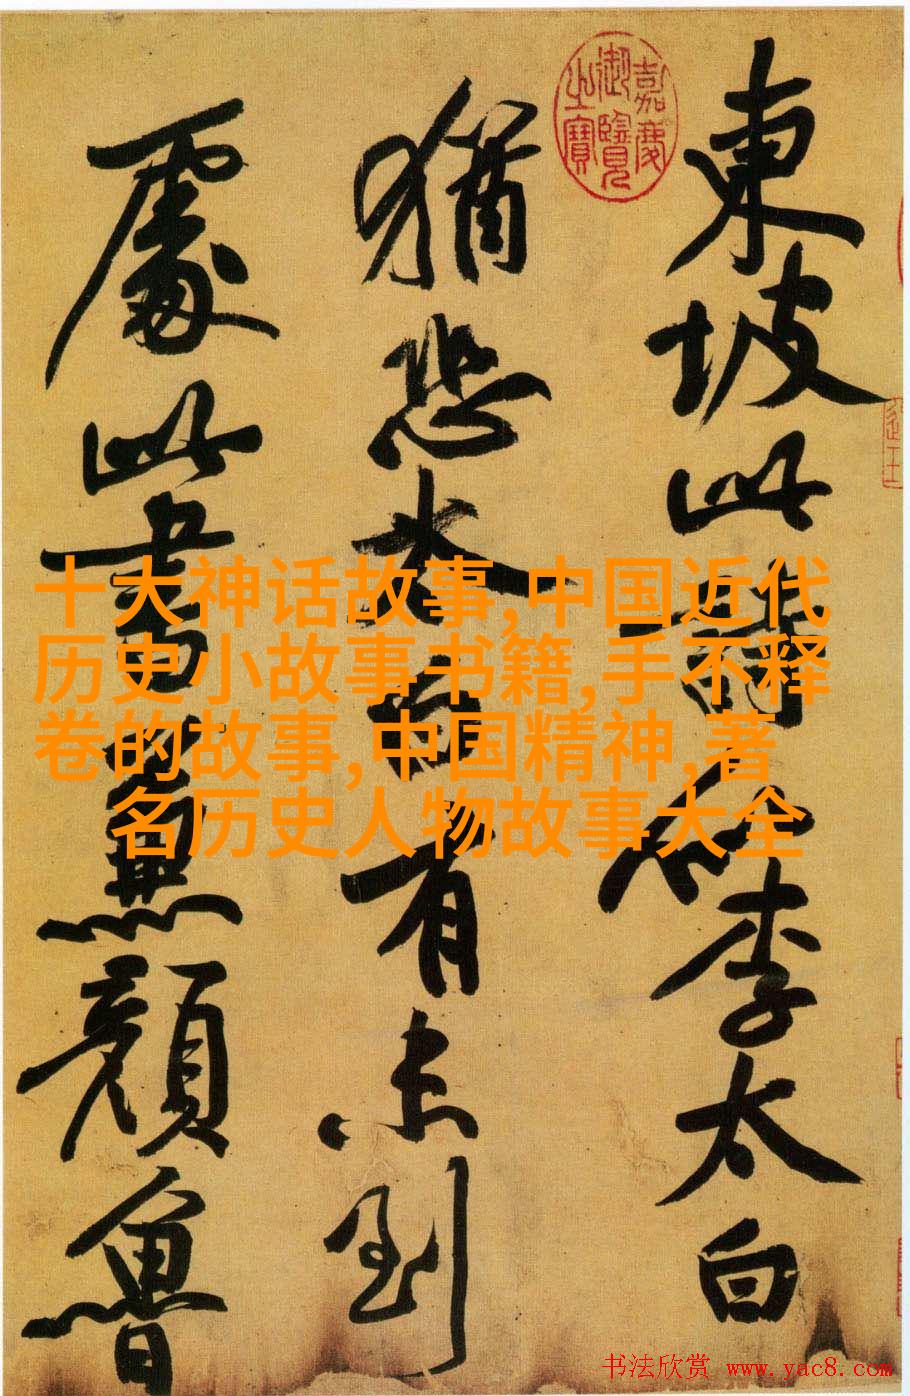 東坡此詩似李太白
猶恐太白有未到
處此書兼顏魯
嘉慶
御覽
之寶
十大神话故事,中国近代
历史小故事书籍,手不释
卷的故事,中国精神,著
名历史人物故事大全
书法欣赏 www.yac8.com